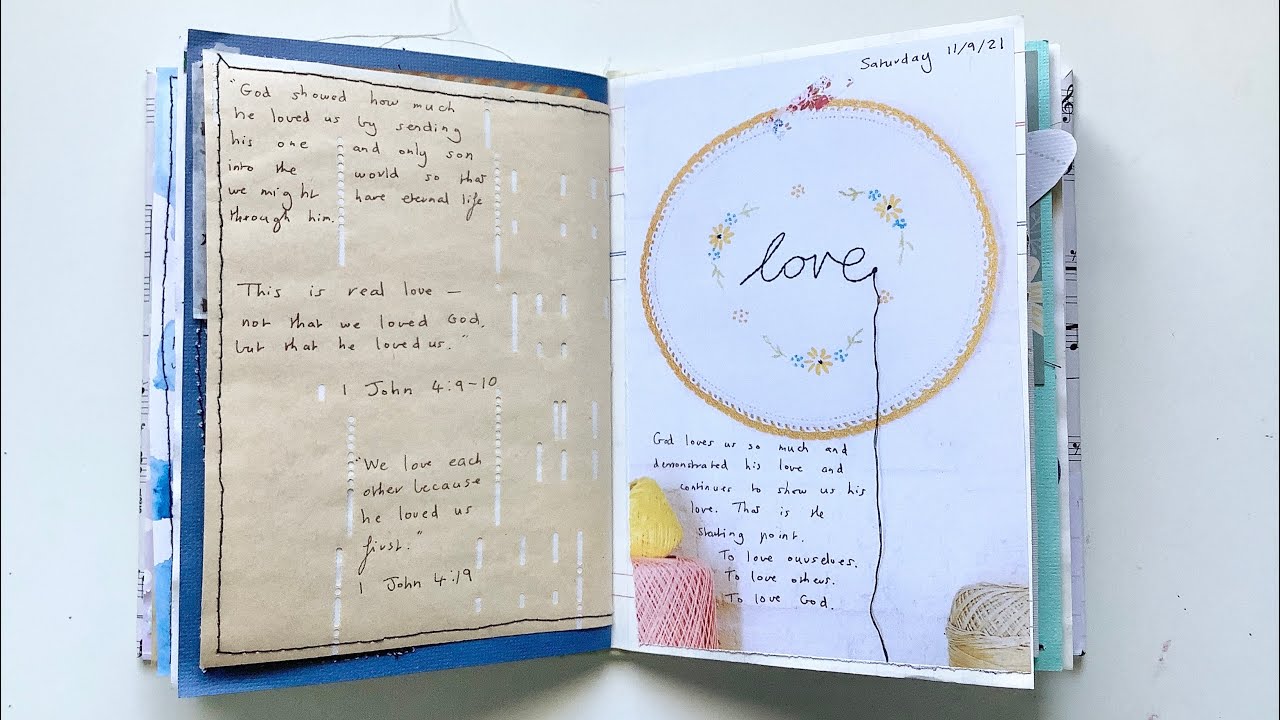 "God showed how much
he loved us by sending
his one and only son
into the world so that
we might have eternal life
through him.
This is real love —
not that we loved God,
but that he loved us."
1 John 4:9-10
"We love each
other because
he loved us
first."
1 John 4:19
Saturday 11/9/21
love
God loves us so much and
demonstrated his love and
continues to show us his
love. That is the
starting point.
To love ourselves.
To love others.
To love God.